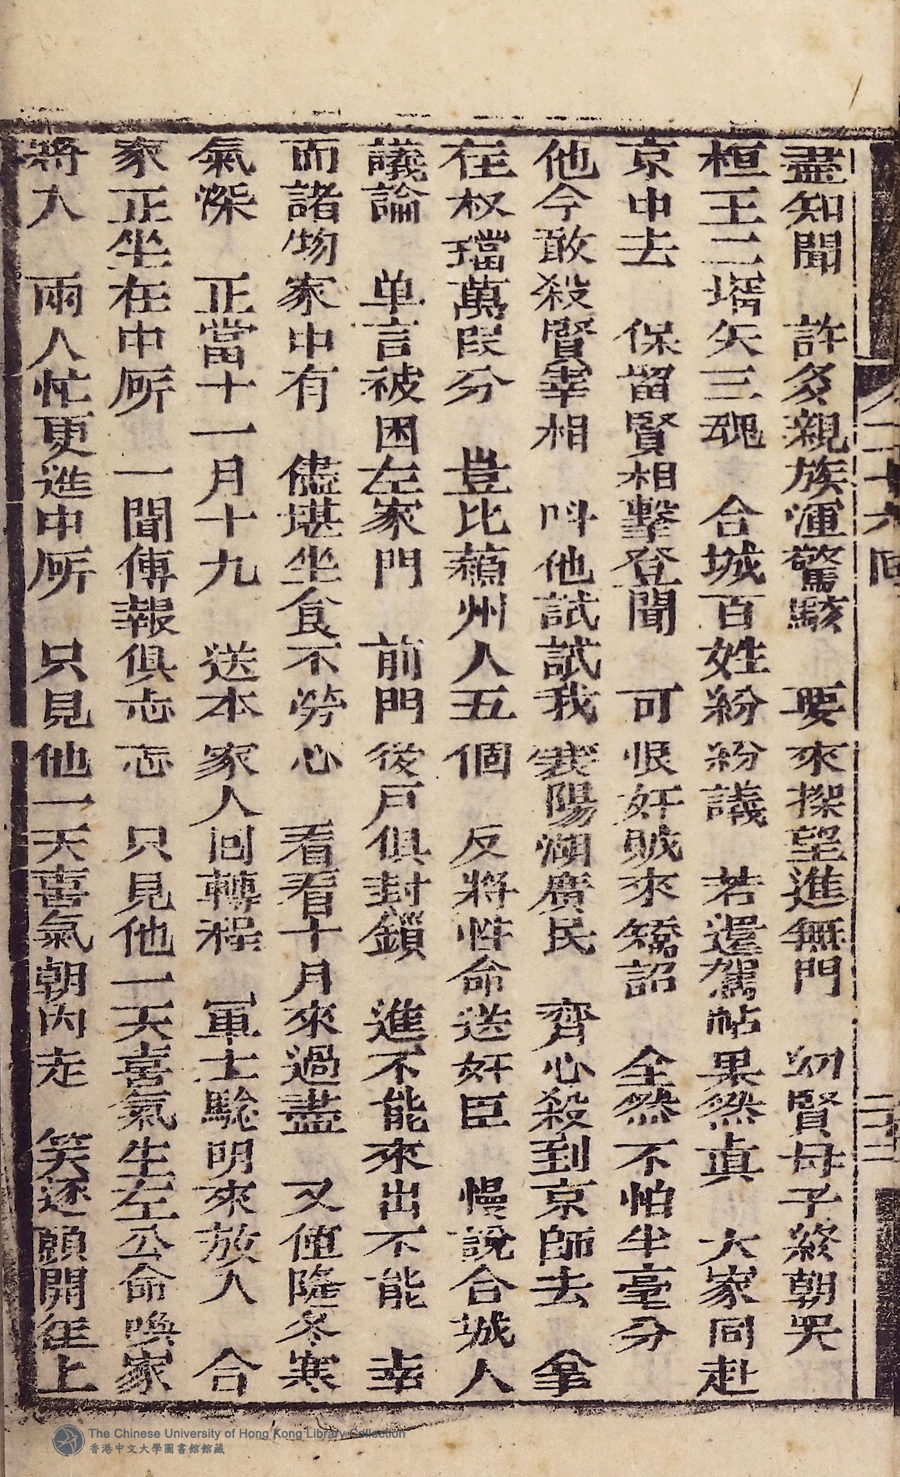 盡知聞　許多親族渾驚駭　要來探望進無門　幼賢母子終朝哭
桓王二壻矢三魂　合城百姓紛紛議　若還駕帖果然真　大家同赴
京中去　保留賢相擊登聞　可恨奸賊來矯詔　全然不怕半毫分
他今敢殺賢宰相　呌他試試我襄陽湖廣民　齊心殺到京師去　拿
在权璫萬段分　豈比蘓州人五個　反將性命送奸臣　慢說合城人
議論　单言被困左家門　前門後戶俱封鎖　進不能來出不能　幸
而諸物家中有　儘堪坐食不勞心　看看十月來過盡　又值隆冬寒
氣深　正當十一月十九　送本家人囘轉程　軍士騐明來放入　合
家正坐在中所　一聞傳報俱忐忑　只見他一天喜氣生左公命喚家
將入　兩人忙更進中所　只見他一天喜氣朝內走　笑逐顔開往上
二十六囘
二十三
The Chinese University of Hong Kong Library Collection
香港中文大學圖書館館藏